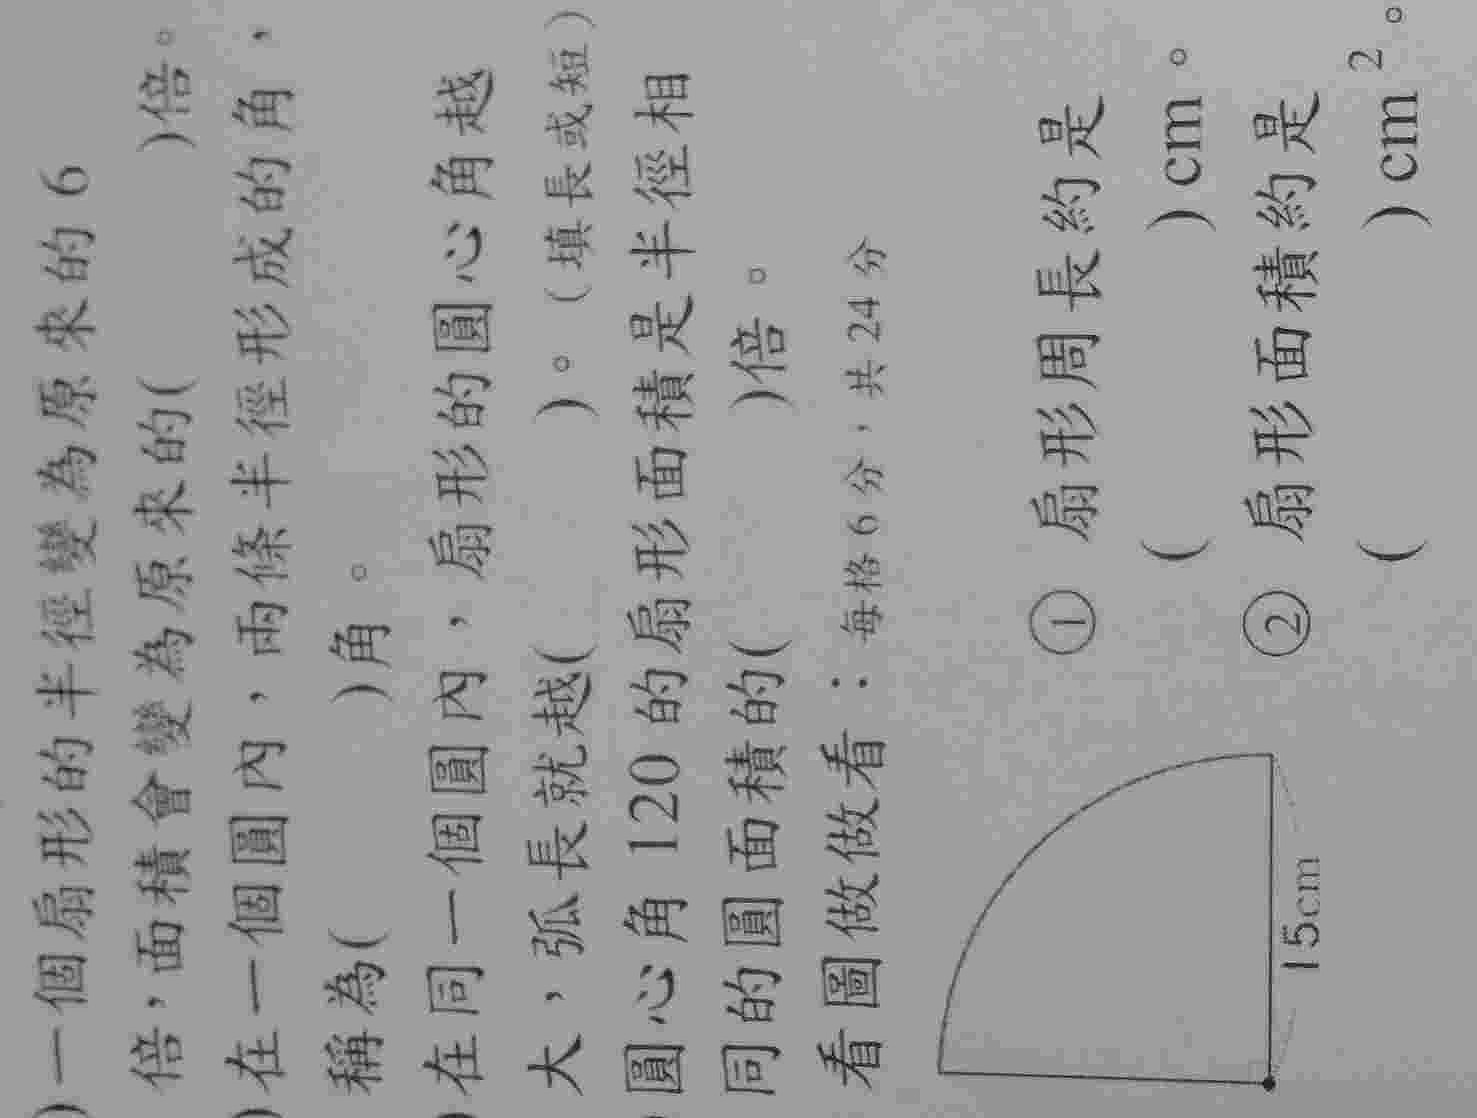 )一個扇形的半徑變為原來的6
倍，面積會變為原來的( )倍。
)在一個圓內，兩條半徑形成的角，
稱為( )角。
)在同一個圓內，扇形的圓心角越
大，弧長就越( )。(填長或短)
圓心角120的扇形面積是半徑相
同的圓面積的( )倍。
看圖做做看：每格6分，共24分
15cm
① 扇形周長約是
( )cm。
② 扇形面積約是
( )cm²。